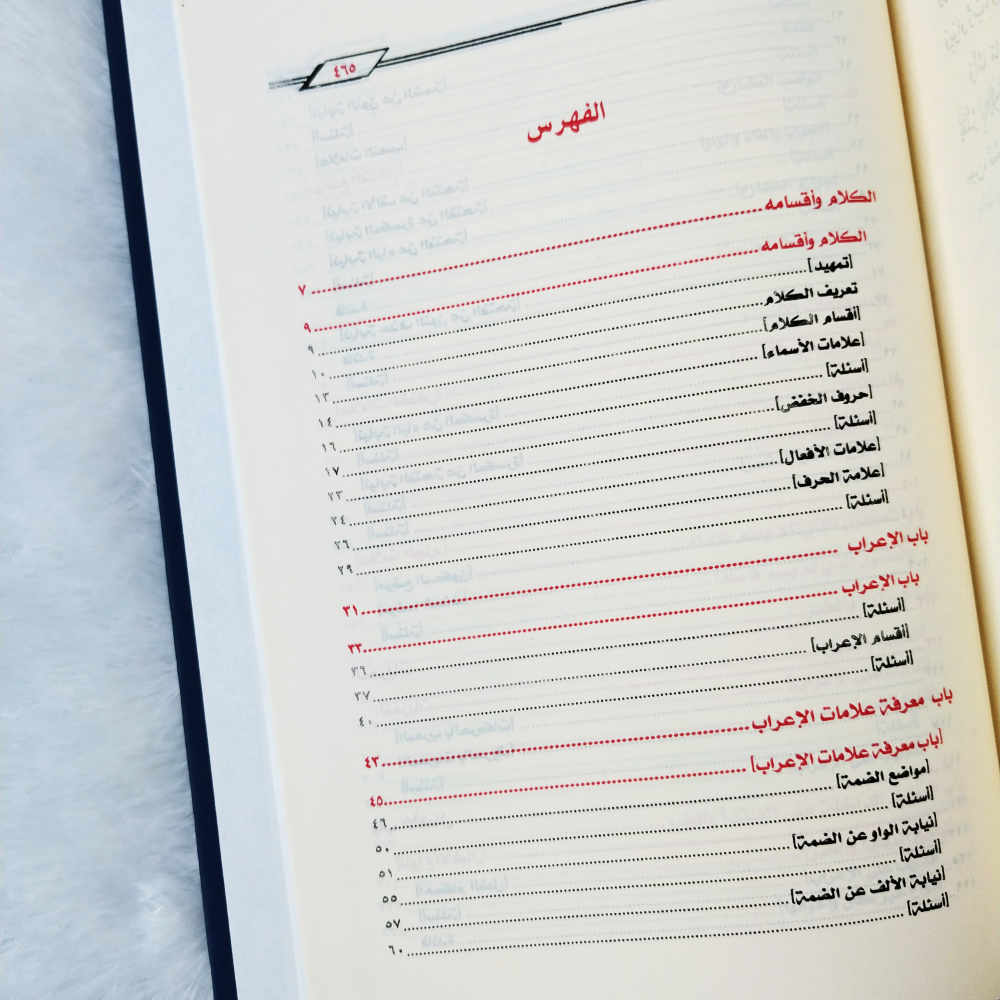 ٤٦٥
الفهرس
الكلام وأقسامه ٧
الكلام وأقسامه ٩
[تمهيد] ٩
تعريف الكلام ١٠
[أقسام الكلام] ١٣
[علامات الأسماء] ١٤
[أسئلة] ١٦
[حروف الخفض] ١٧
[أسئلة] ٢٣
[علامات الأفعال] ٢٤
[علامة الحرف] ٢٦
[أسئلة] ٢٩
باب الإعراب ٣١
باب الإعراب ٣٣
[أسئلة] ٣٦
[أقسام الإعراب] ٣٧
[أسئلة] ٤٠
باب معرفة علامات الإعراب ٤٣
[باب معرفة علامات الإعراب] ٤٥
[مواضع الضمة] ٤٦
[أسئلة] ٥٠
[نيابة الواو عن الضمة] ٥١
[أسئلة] ٥٥
[نيابة الألف عن الضمة] ٥٧
[أسئلة] ٦٠